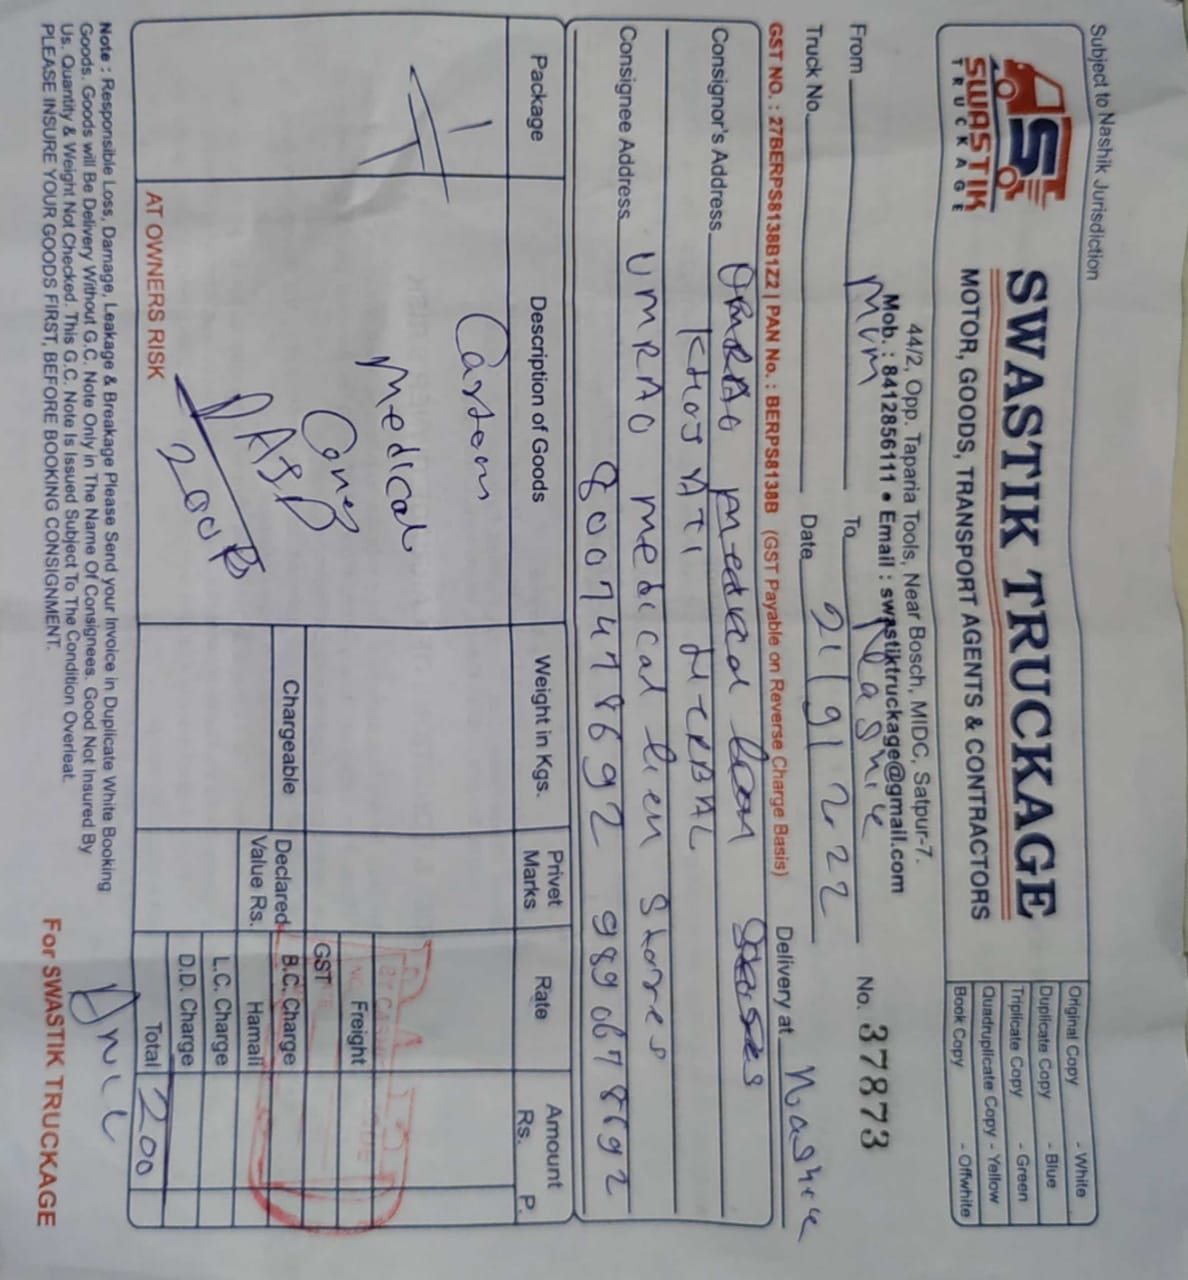 Subject to Nashik Jurisdiction
SWASTIK
TRUCKAGE
SWASTIK TRUCKAGE
MOTOR, GOODS, TRANSPORT AGENTS & CONTRACTORS
44/2, Opp. Taparia Tools, Near Bosch, MIDC, Satpur-7.
Mob. : 8412856111 • Email : swastiktruckage@gmail.com
Original Copy - White
Duplicate Copy - Blue
Triplicate Copy - Green
Quadruplicate Copy - Yellow
Book Copy - Offwhite
From Mum To Nashik No. 37873
Truck No. Date 21/9/2022 Delivery at Nashik
GST NO. : 27BERPS8138B1Z2 | PAN No. : BERPS8138B (GST Payable on Reverse Charge Basis)
Consignor's Address
HERBAL
Consignee Address UMRAO medical Stores
8007478692
Package Description of Goods Weight in Kgs. Privet Marks Rate Amount Rs. P.
1
Medical
200
AT OWNERS RISK
Chargeable
Declared Value Rs.
Freight
GST
B.C. Charge
Hamali
L.C. Charge
D.D. Charge
Total 200
Note : Responsible Loss, Damage, Leakage & Breakage Please Send your Invoice in Duplicate White Booking
Goods. Goods will Be Delivery Without G.C. Note Only in The Name Of Consignees. Good Not Insured By
Us. Quantity & Weight Not Checked. This G.C. Note Is Issued Subject To The Condition Overleat.
PLEASE INSURE YOUR GOODS FIRST, BEFORE BOOKING CONSIGNMENT.
For SWASTIK TRUCKAGE